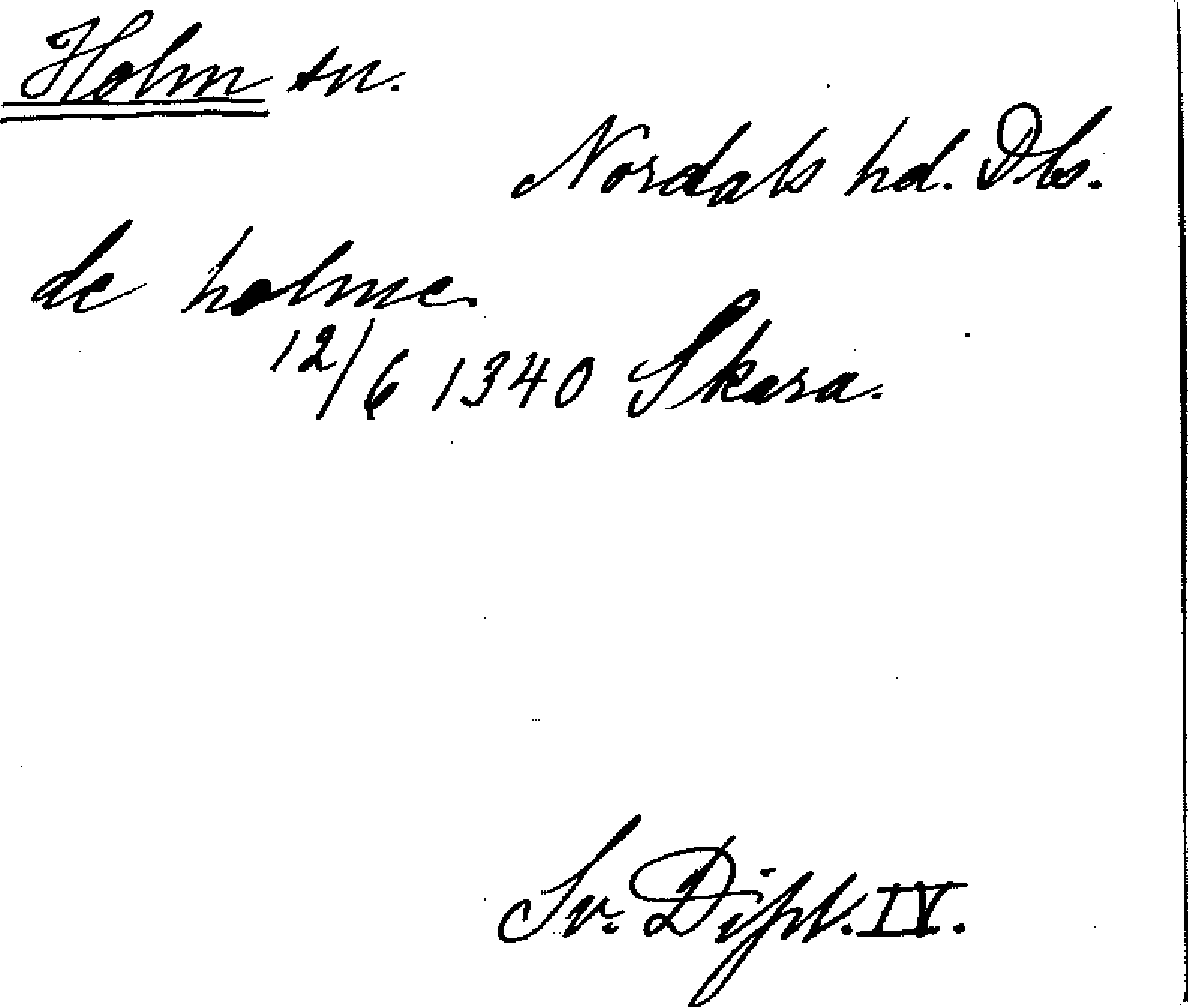 Holm sn.
Nordals hd. Dls.
de holme.
12/6 1340 Skara.
Sv. Dipl. IV.